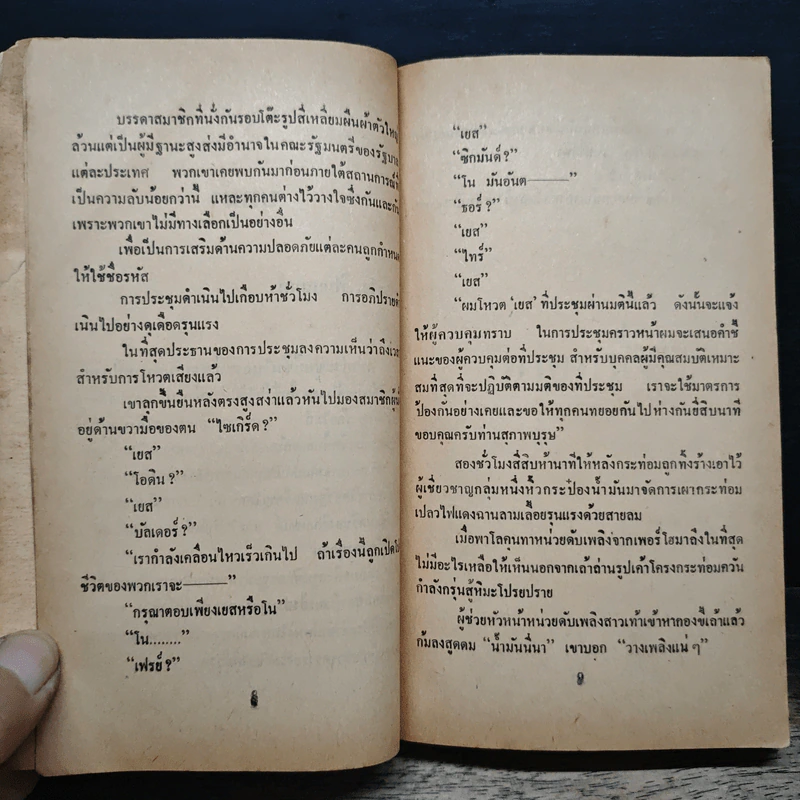 บรรดาสมาชิกที่นั่งกันรอบโต๊ะรูปสี่เหลี่ยมผืนผ้าตัวใหญ่
ล้วนแต่เป็นผู้มีฐานะสูงส่งมีอำนาจในคณะรัฐมนตรีของรัฐบาล
แต่ละประเทศ พวกเขาเคยพบกันมาก่อนภายใต้สถานการณ์ที่
เป็นความลับน้อยกว่านี้ แหละทุกคนต่างไว้วางใจซึ่งกันและกัน
เพราะพวกเขาไม่มีทางเลือกเป็นอย่างอื่น
เพื่อเป็นการเสริมด้านความปลอดภัยแต่ละคนถูกกำหนด
ให้ใช้ชื่อรหัส
การประชุมดำเนินไปเกือบห้าชั่วโมง การอภิปราย
เนินไปอย่างดุเดือดรุนแรง
ในที่สุดประธานของการประชุมลงความเห็นว่าถึงเวลา
สำหรับการโหวตเสียงแล้ว
เขาลุกขึ้นยืนหลังตรงสูงสง่าแล้วหันไปมองสมาชิก
อยู่ด้านขวามือของตน “ไซเกิร์ด?”
“เยส”
“โอดิน?”
“เยส”
“บัลเดอร์?”
“เรากำลังเคลื่อนไหวเร็วเกินไป ถ้าเรื่องนี้ถูกเปิด
ชีวิตของพวกเราจะ———”
“กรุณาตอบเพียงเยสหรือโน”
“โน........”
“เฟรย์?”
8
“เยส”
“ซิกมันด์?”
“โน มันอันต———”
“ธอร์?”
“เยส”
“ไทร์”
“เยส”
“ผมโหวต ‘เยส’ ที่ประชุมผ่านมตินี้แล้ว ดังนั้นจะแจ้ง
ให้ผู้ควบคุมทราบ ในการประชุมคราวหน้าผมจะเสนอคำชี้
แนะของผู้ควบคุมต่อที่ประชุม สำหรับบุคคลผู้มีคุณสมบัติเหมาะ
สมที่สุดที่จะปฏิบัติตามมติของที่ประชุม เราจะใช้มาตรการ
ป้องกันอย่างเคยและขอให้ทุกคนทยอยกันไปห่างกันยี่สิบนาที
ขอบคุณครับท่านสุภาพบุรุษ”
สองชั่วโมงสี่สิบห้านาทีให้หลังกระท่อมถูกทิ้งร้างเอาไว้
ผู้เชี่ยวชาญกลุ่มหนึ่งหิ้วกระป๋องน้ำมันมาจัดการเผากระท่อม
เปลวไฟแดงฉานลามเลื้อยรุนแรงด้วยสายลม
เมื่อพาโลคุนทาหน่วยดับเพลิงจากเพอร์โฮมาถึงในที่สุด
ไม่มีอะไรเหลือให้เห็นนอกจากเถ้าถ่านรูปเค้าโครงกระท่อมควัน
กำลังกรุ่นสู้หิมะโปรยปราย
ผู้ช่วยหัวหน้าหน่วยดับเพลิงสาวเท้าเข้าหากองขี้เถ้าแล้ว
ก้มลงสูดดม “น้ำมันนี่นา” เขาบอก “วางเพลิงแน่ๆ”
9